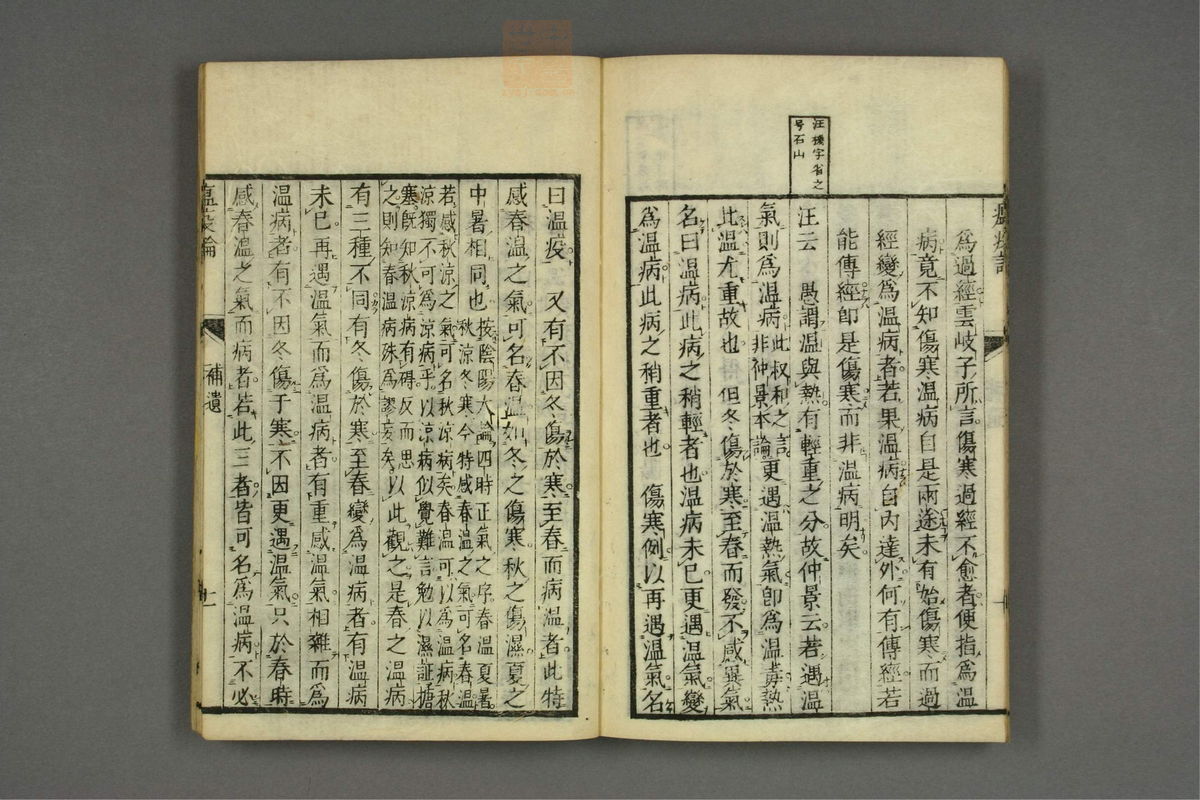 汪機字省之
号石山
為過經雲岐子所言傷寒過經不愈者便指為温
病竟不知傷寒温病自是兩途未有始傷寒而過
經變為温病者若果温病自内達外何有傳經若
能傳經即是傷寒而非温病明矣
汪云 愚謂温與熱有輕重之分故仲景云若遇温
氣則為温病此叔和之言
非仲景本論更遇温熱氣即為温毒熱
此温尤重故也 但冬傷於寒至春而發不感異氣
名曰温病此病之稍輕者也温病未已更遇温氣變
為温病此病之稍重者也 傷寒例以再遇温氣名
曰温疫 又有不因冬傷於寒至春而病温者此特
感春温之氣可名春温如冬之傷寒秋之傷濕夏之
中暑相同也按陰陽大論四時正氣之序春温夏暑
秋涼冬寒今特感春温之氣可名春温
若感秋涼之氣可名秋涼病矣春温可以為温病秋
涼獨不可為涼病乎以涼病似覺難言勉以濕証搪
塞既知秋涼病有碍反而思
之則知春温病殊為謬妄矣以此觀之是春之温病
有三種不同有冬傷於寒至春變為温病者有温病
未已再遇温氣而為温病者有重感温氣相雜而為
温病者有不因冬傷于寒不因更遇温氣只於春時
感春温之氣而病者若此三者皆可名為温病不必
補遺